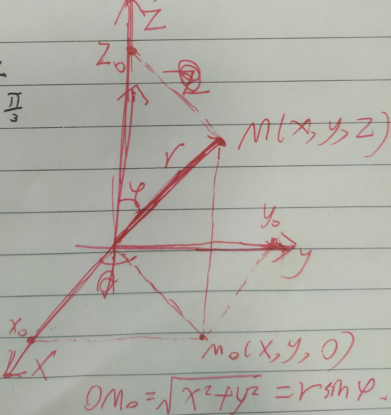 Z
Z₀
π/3
M(x,y,z)
r
φ
y₀
y
θ
x₀
X
M₀(x,y,0)
OM₀=√x²+y² =rsinφ.